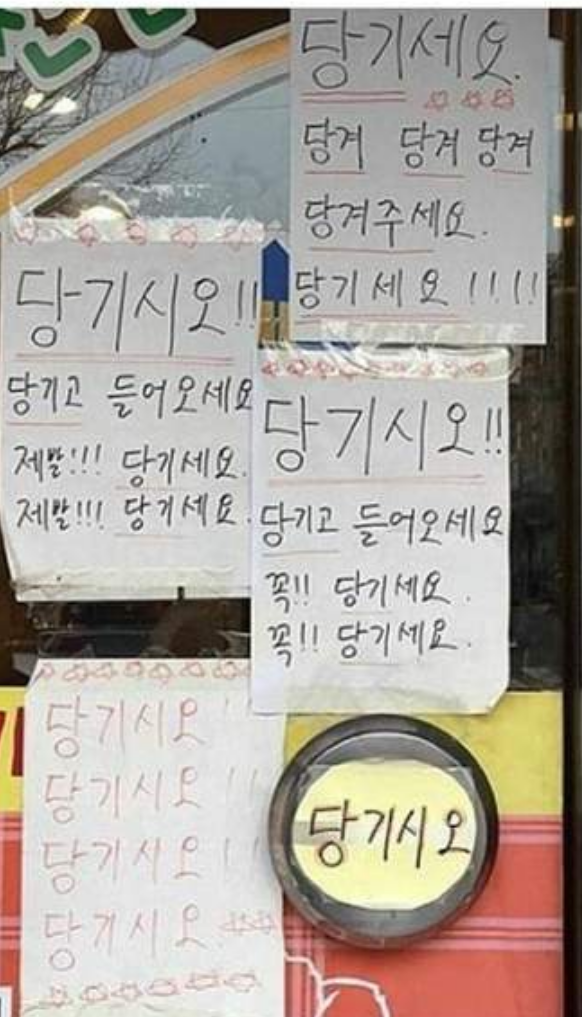 당기세요.
당겨 당겨 당겨
당겨주세요.
당기세요!!!!
당기시오!!
당기고 들어오세요
제발!!! 당기세요.
제발!!! 당기세요.
당기시오!!
당기고 들어오세요
꼭!! 당기세요.
꼭!! 당기세요.
당기시오!!
당기시오!!
당기시오!!
당기시오
당기시오